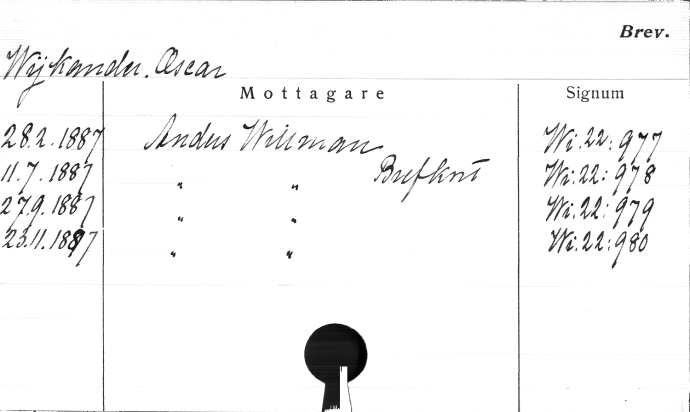 Brev.
Wijkander, Oscar
Mottagare Signum
28.2.1887 Anders Willman Wi.22:977
11.7.1887 " " Brefkort Wi.22:978
27.9.1887 " " Wi.22:979
23.11.1887 " " Wi.22:980